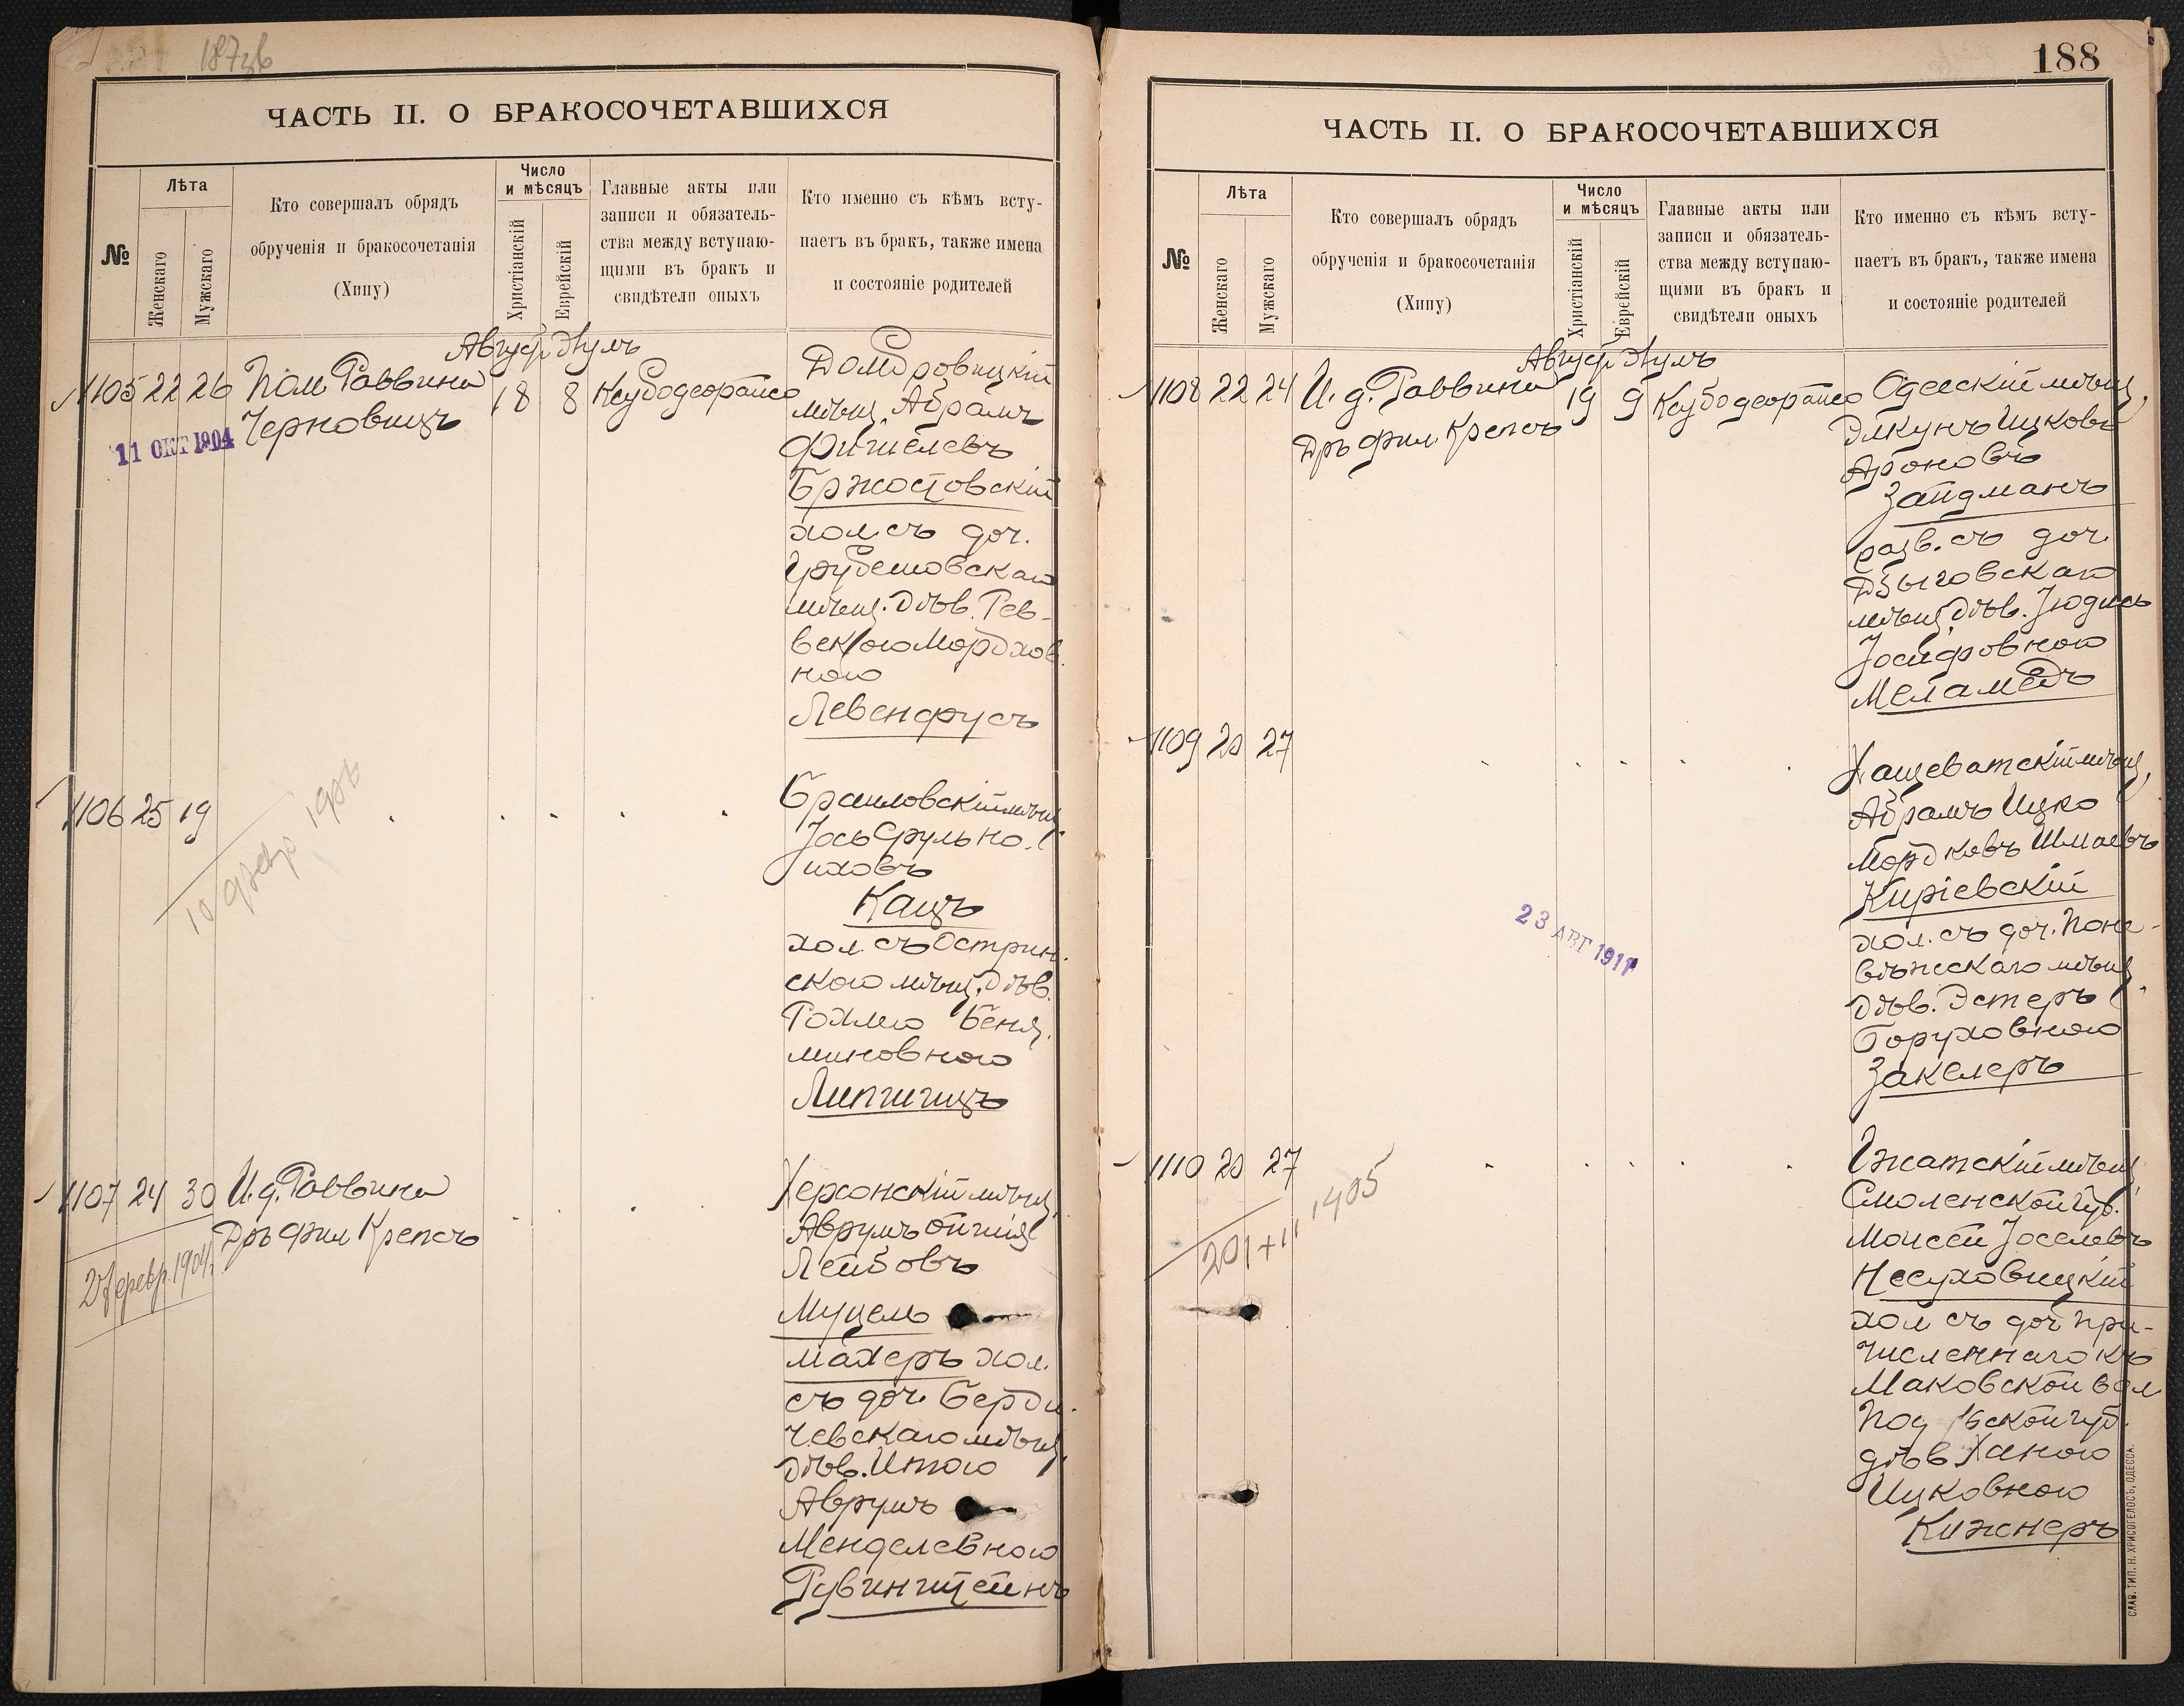 187об
ЧАСТЬ II. О БРАКОСОЧЕТАВШИХСЯ
№
Лѣта
Женскаго
Мужскаго
Кто совершалъ обрядъ
обрученія и бракосочетанія
(Хипу)
Число
и мѣсяцъ
Христіанскій
Еврейскій
Главные акты или
записи и обязатель-
ства между вступаю-
щими въ бракъ и
свидѣтели оныхъ
Кто именно съ кѣмъ всту-
паетъ въ бракъ, также имена
и состояніе родителей
Август Элулъ
1105 22 26 Пом Раввина 18 8
Черновицъ
11 ОКТ 1904
Домбровицкій
мѣщ. Абрамъ
Фишелевъ
Бржостовскій
хол. съ доч.
Грубешовскаго
мѣщ. дѣв. Рев-
векою Мордхов
ною
Левенфусъ
1106 25 19
Браиловскій мѣщ.
Іось Сруль Но-
иховъ
Кацъ
хол. съ Острин-
скою мѣщ. дѣв.
Рохлею Бенья-
миновною
Липшицъ
1107 24 30 И. д. Раввина
Дръ фил Крепсъ
Херсонскій мѣщ.
Аврумъ
Лейбовъ
Муцель
махеръ хол.
съ доч. Берди-
чевскаго мѣщ.
дѣв. Итою
Аврумъ
Менделевною
Рувинштейнъ
188
ЧАСТЬ II. О БРАКОСОЧЕТАВШИХСЯ
№
Лѣта
Женскаго
Мужскаго
Кто совершалъ обрядъ
обрученія и бракосочетанія
(Хипу)
Число
и мѣсяцъ
Христіанскій
Еврейскій
Главные акты или
записи и обязатель-
ства между вступаю-
щими въ бракъ и
свидѣтели оныхъ
Кто именно съ кѣмъ всту-
паетъ въ бракъ, также имена
и состояніе родителей
Август Элулъ
1108 22 24 И. д. Раввина 19 9
Дръ фил. Крепсъ
Одесскій мѣщ.
Элкунъ Ицковъ
Ароновъ
Зайдманъ
разв. съ доч.
Дзыговскаго
мѣщ. дѣв. Юдись
Іосифовною
Меламедъ
1109 20 27
Хащеватскій мѣщ.
Абрамъ Ицко
Мордковъ Шмаевъ
Киріевскій
хол. съ доч. Поне-
вѣжскаго мѣщ.
дѣв. Эстеръ
Боруховною
Закелеръ
23 АВГ 1911
1110 20 27
Гжатскій мѣщ.
Смоленской губ.
Моисей Іоселевъ
Несуховицкій
хол съ доч при-
численнаго къ
Маковской вол
Под ской губ.
дѣв Ханою
Ицковною
Кижнеръ
СЛАВ. ТИП. Н. ХРИСОГЕЛОСЪ, ОДЕССА.